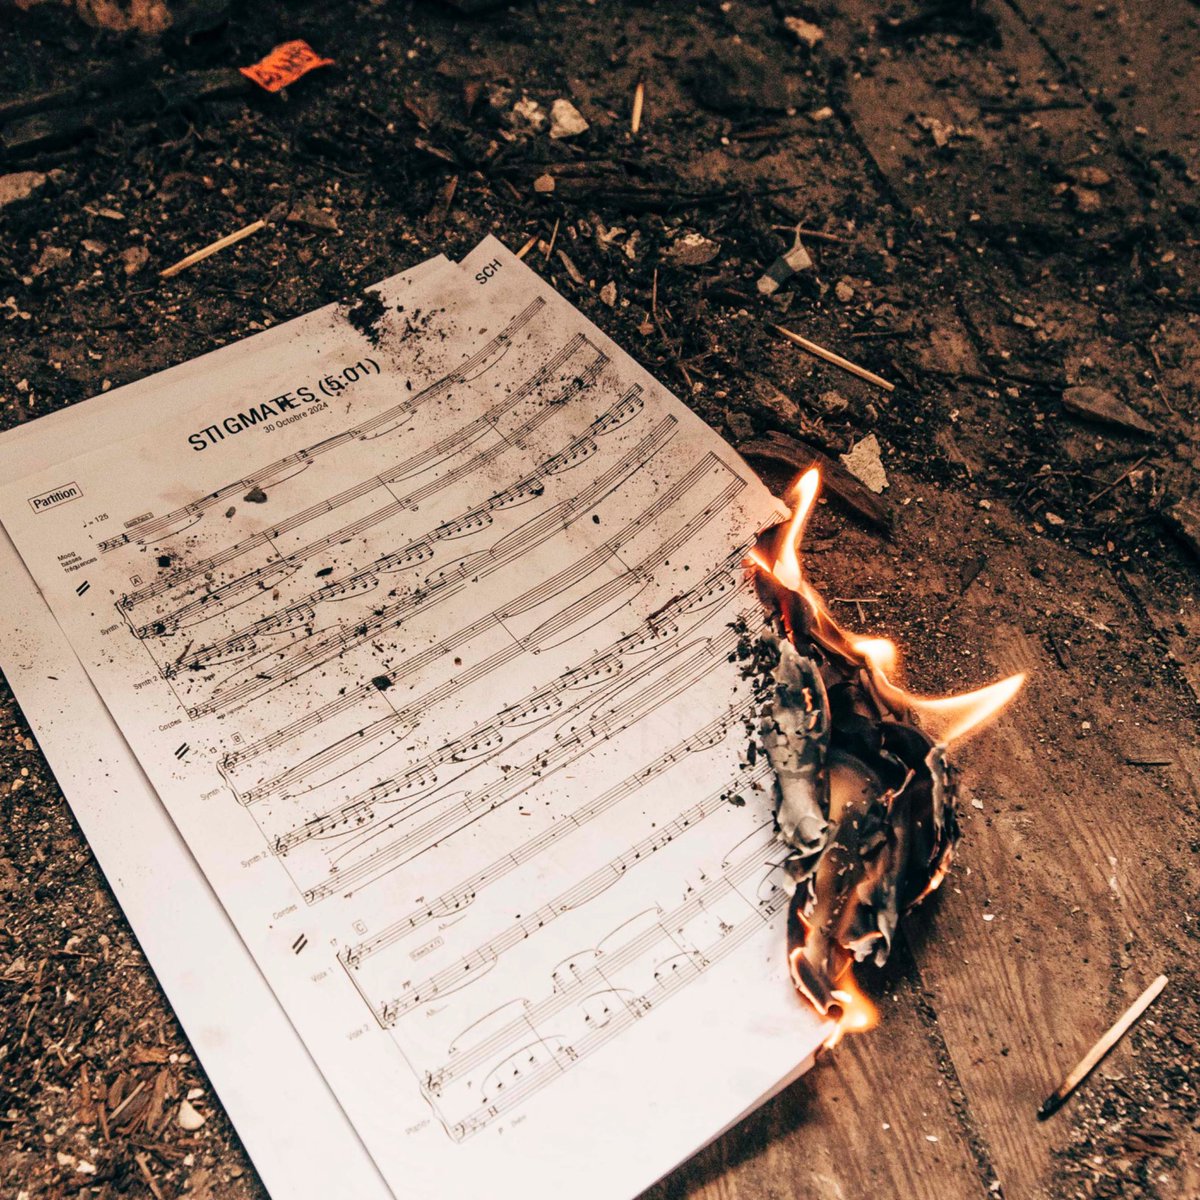 SCH
STIGMATES (5:01)
30 Octobre 2024
Partition
♩ = 125
1
Moog
basses
fréquences
9
A
Synth 1
Synth 2
Cordes
13
B
Synth 1
Synth 2
Cordes
17
C
Voix 1
mp
Ah
Voix 2
pp
Ah
Piano
p